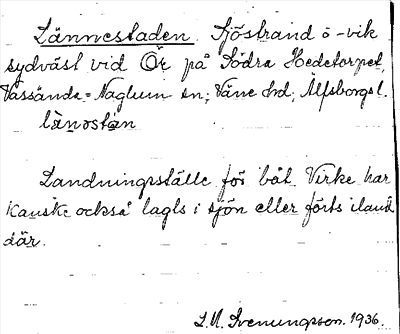 Lännestaden Sjöstrand ö -vik
sydväst vid Ör på Södra Hedetorpet,
Vassända-Naglum sn; Väne hd; Älfsborgs l.
länostan
Landningsställe för båt. Virke har
kanske också lagts i sjön eller förts iland
där.
L. N. Svenungsson. 1936.